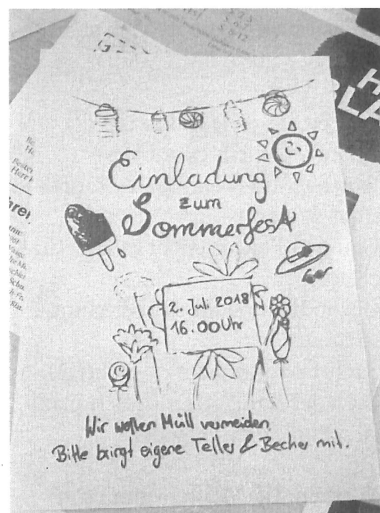 Einladung
zum
Sommerfest
2. Juli 2018
16.00 Uhr
Wir wollen Müll vermeiden.
Bitte bringt eigene Teller & Becher mit.